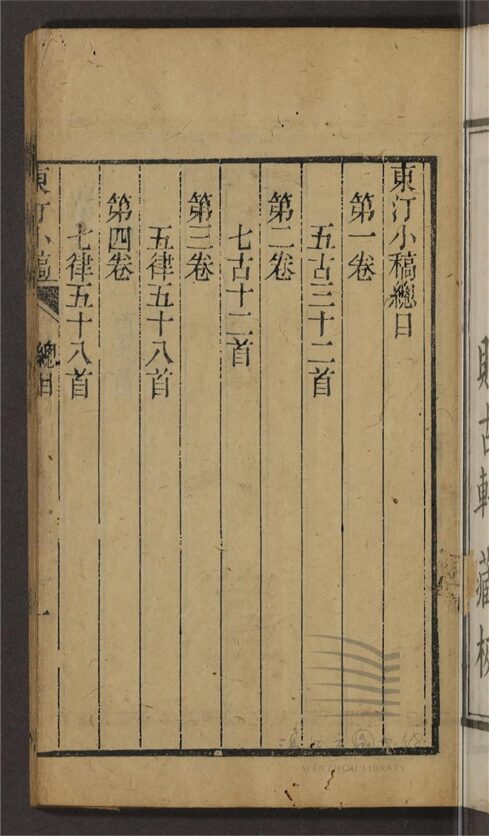 東汀小稿總目
第一卷
五古三十二首
第二卷
七古十二首
第三卷
五律五十八首
第四卷
七律五十八首
東汀小稿
總目
一
古軒藏板
WENZHOU LIBRARY